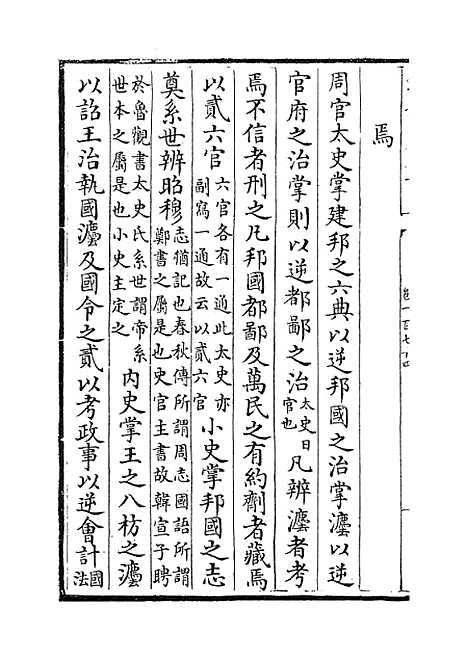 焉
周官太史掌建邦之六典以逆邦國之治掌灋以逆
官府之治掌則以逆都鄙之治太史日官也凡辨灋者考
焉不信者刑之凡邦國都鄙及萬民之有約劑者藏焉
以貳六官六官各有一通此太史亦副寫一通故云以貳六官小史掌邦國之志
奠系世辨昭穆志猶記也春秋傳所謂周志國語所謂鄭書之屬是也史官主書故韓宣子聘
於魯觀書太史氏系世謂帝系世本之屬是也小史主定之內史掌王之八枋之灋
以詔王治執國灋及國令之貳以考政事以逆會計國法